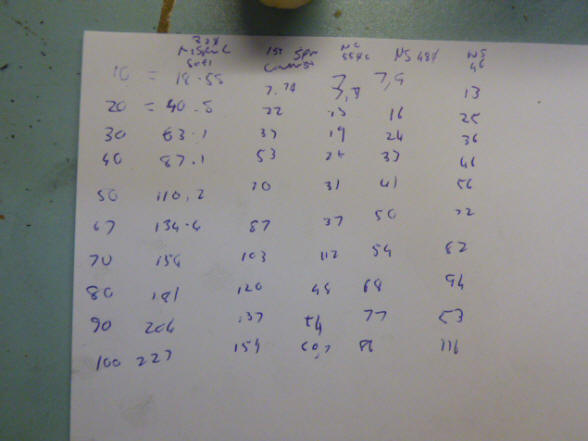 1st Spr NS 48% NS
10 = 18.55 7.78 7,8 7,9 13
20 = 40.5 22 13 16 25
30 63.1 37 19 24 36
40 87.1 53 33 46
50 110,2 70 31 41 56
67 134.4 87 37 50 72
70 154 103 112 54 82
80 181 120 48 68 94
90 204 137 54 77 53
100 227 154 60,7 86 116